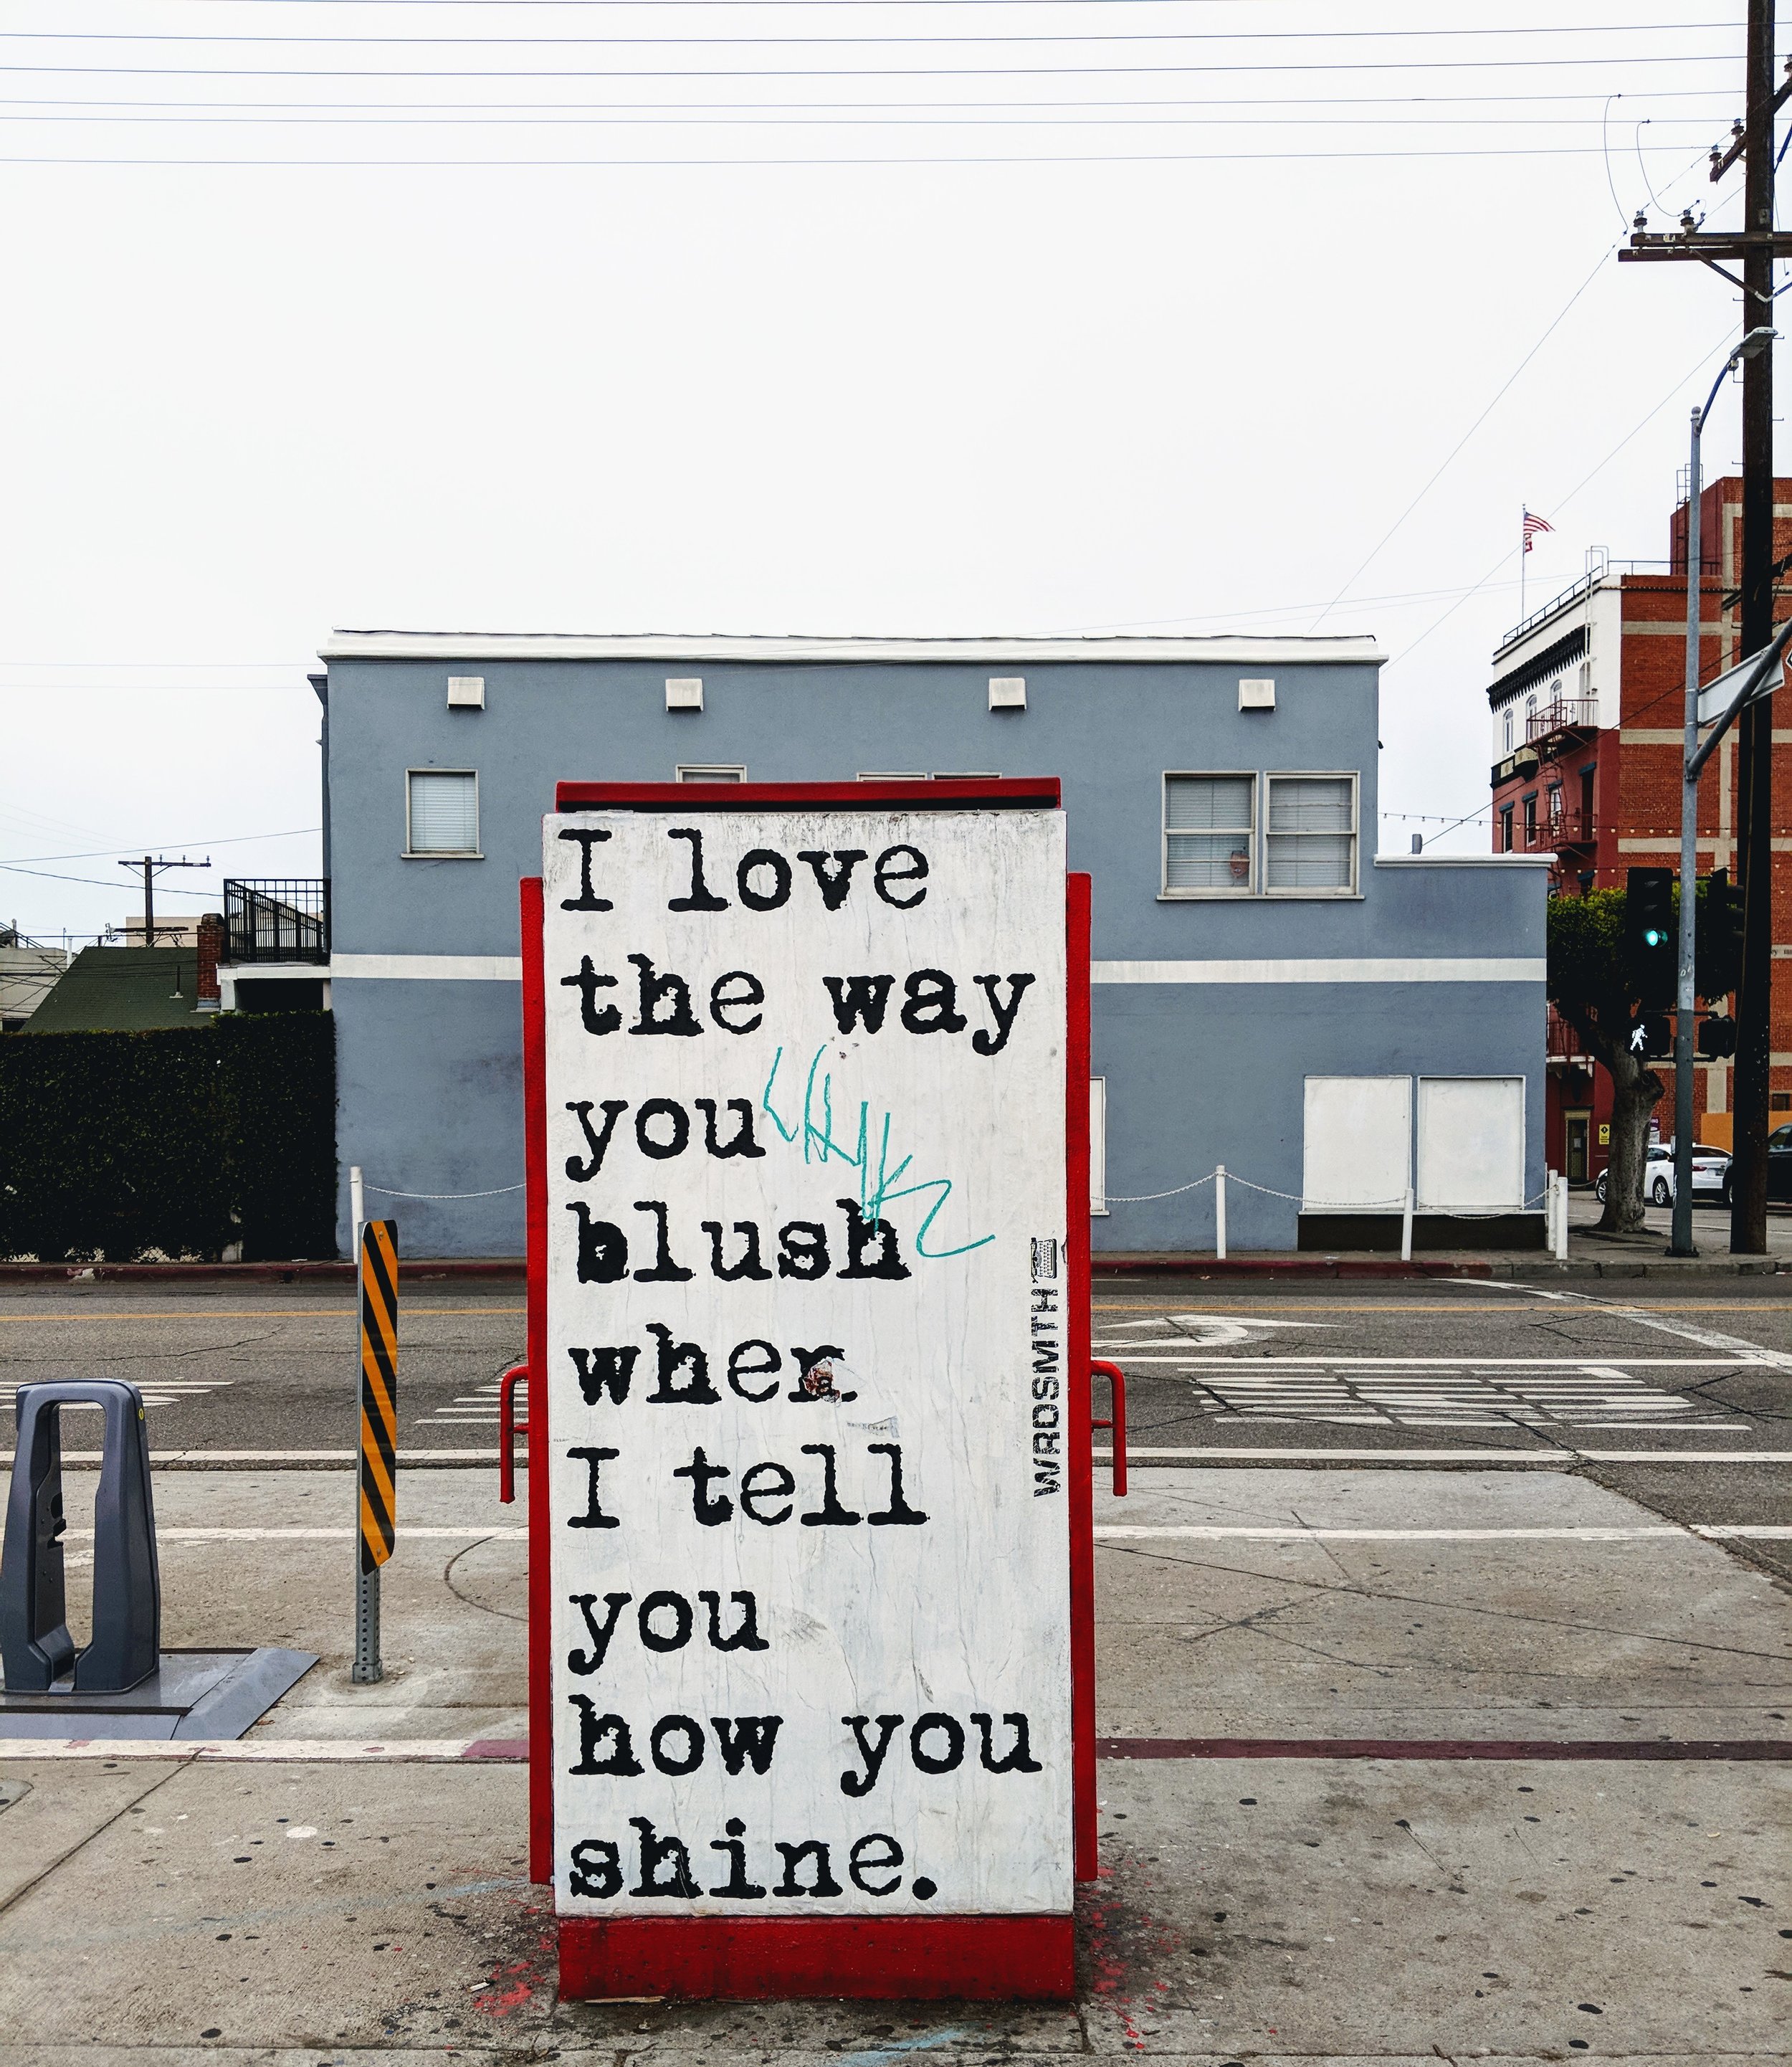 I love
the way
you
blush
when
I tell
you
how you
shine.
WRDSMTH